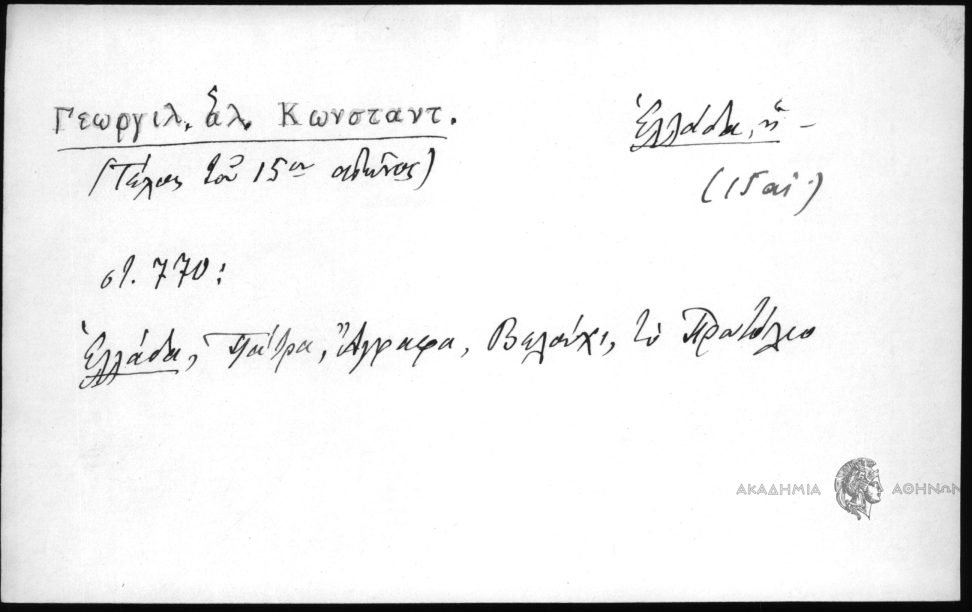 Γεωργιλ. ἁλ. Κωνσταντ.
Ἑλλάδα, ἡ –
(Τέλος τοῦ 15ου αἰῶνος)
(15 αἰ.)
στ. 770:
Ἑλλάδα, Πάτρα, Ἄγραφα, Βελούχι, τὸ Πρωτόλιο
ΑΚΑΔΗΜΙΑ ΑΘΗΝΩΝ